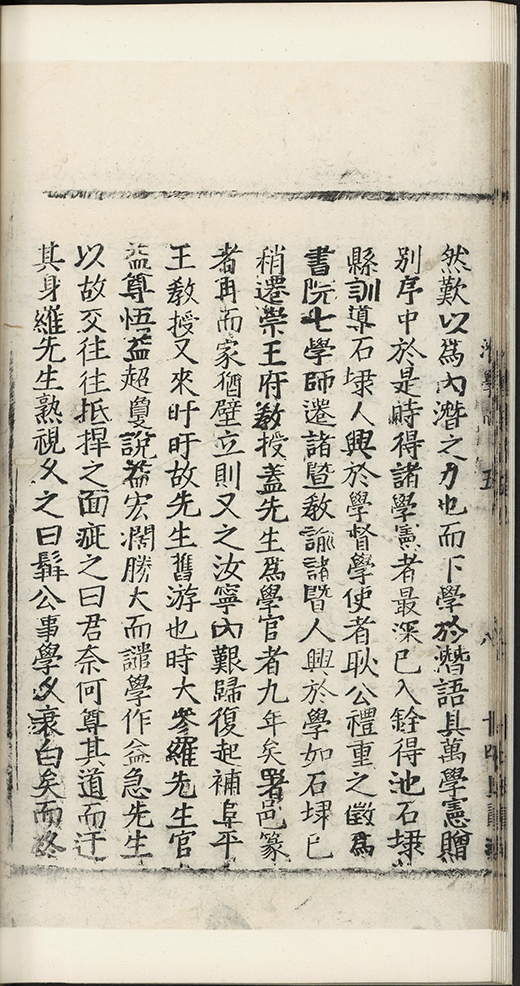 然歎以爲內潛之力也而下學於潛語具萬學憲贈
別序中於是時得諸學憲者最深已入銓得池石埭
縣訓導石埭人興於學督學使者耿公禮重之徵爲
書院七學師遷諸暨教諭諸暨人興於學如石埭已
稍遷崇王府教授蓋先生爲學官者九年矣署邑篆
者再而家猶壁立則又之汝寧內艱歸復起補阜平
王教授又來盱盱故先生舊游也時大參羅先生官
益尊悟益超敻說益宏濶勝大而譴學作益急先生
以故交往往抵捍之面疵之曰君奈何尊其道而迂
其身羅先生熟視久之曰髯公事學久衰白矣而終